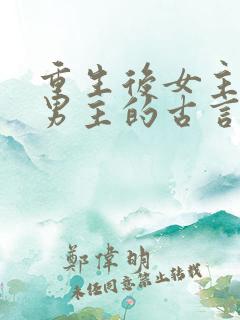 重生後女主
男主的古言
鄭偉明
未经同意禁止转载